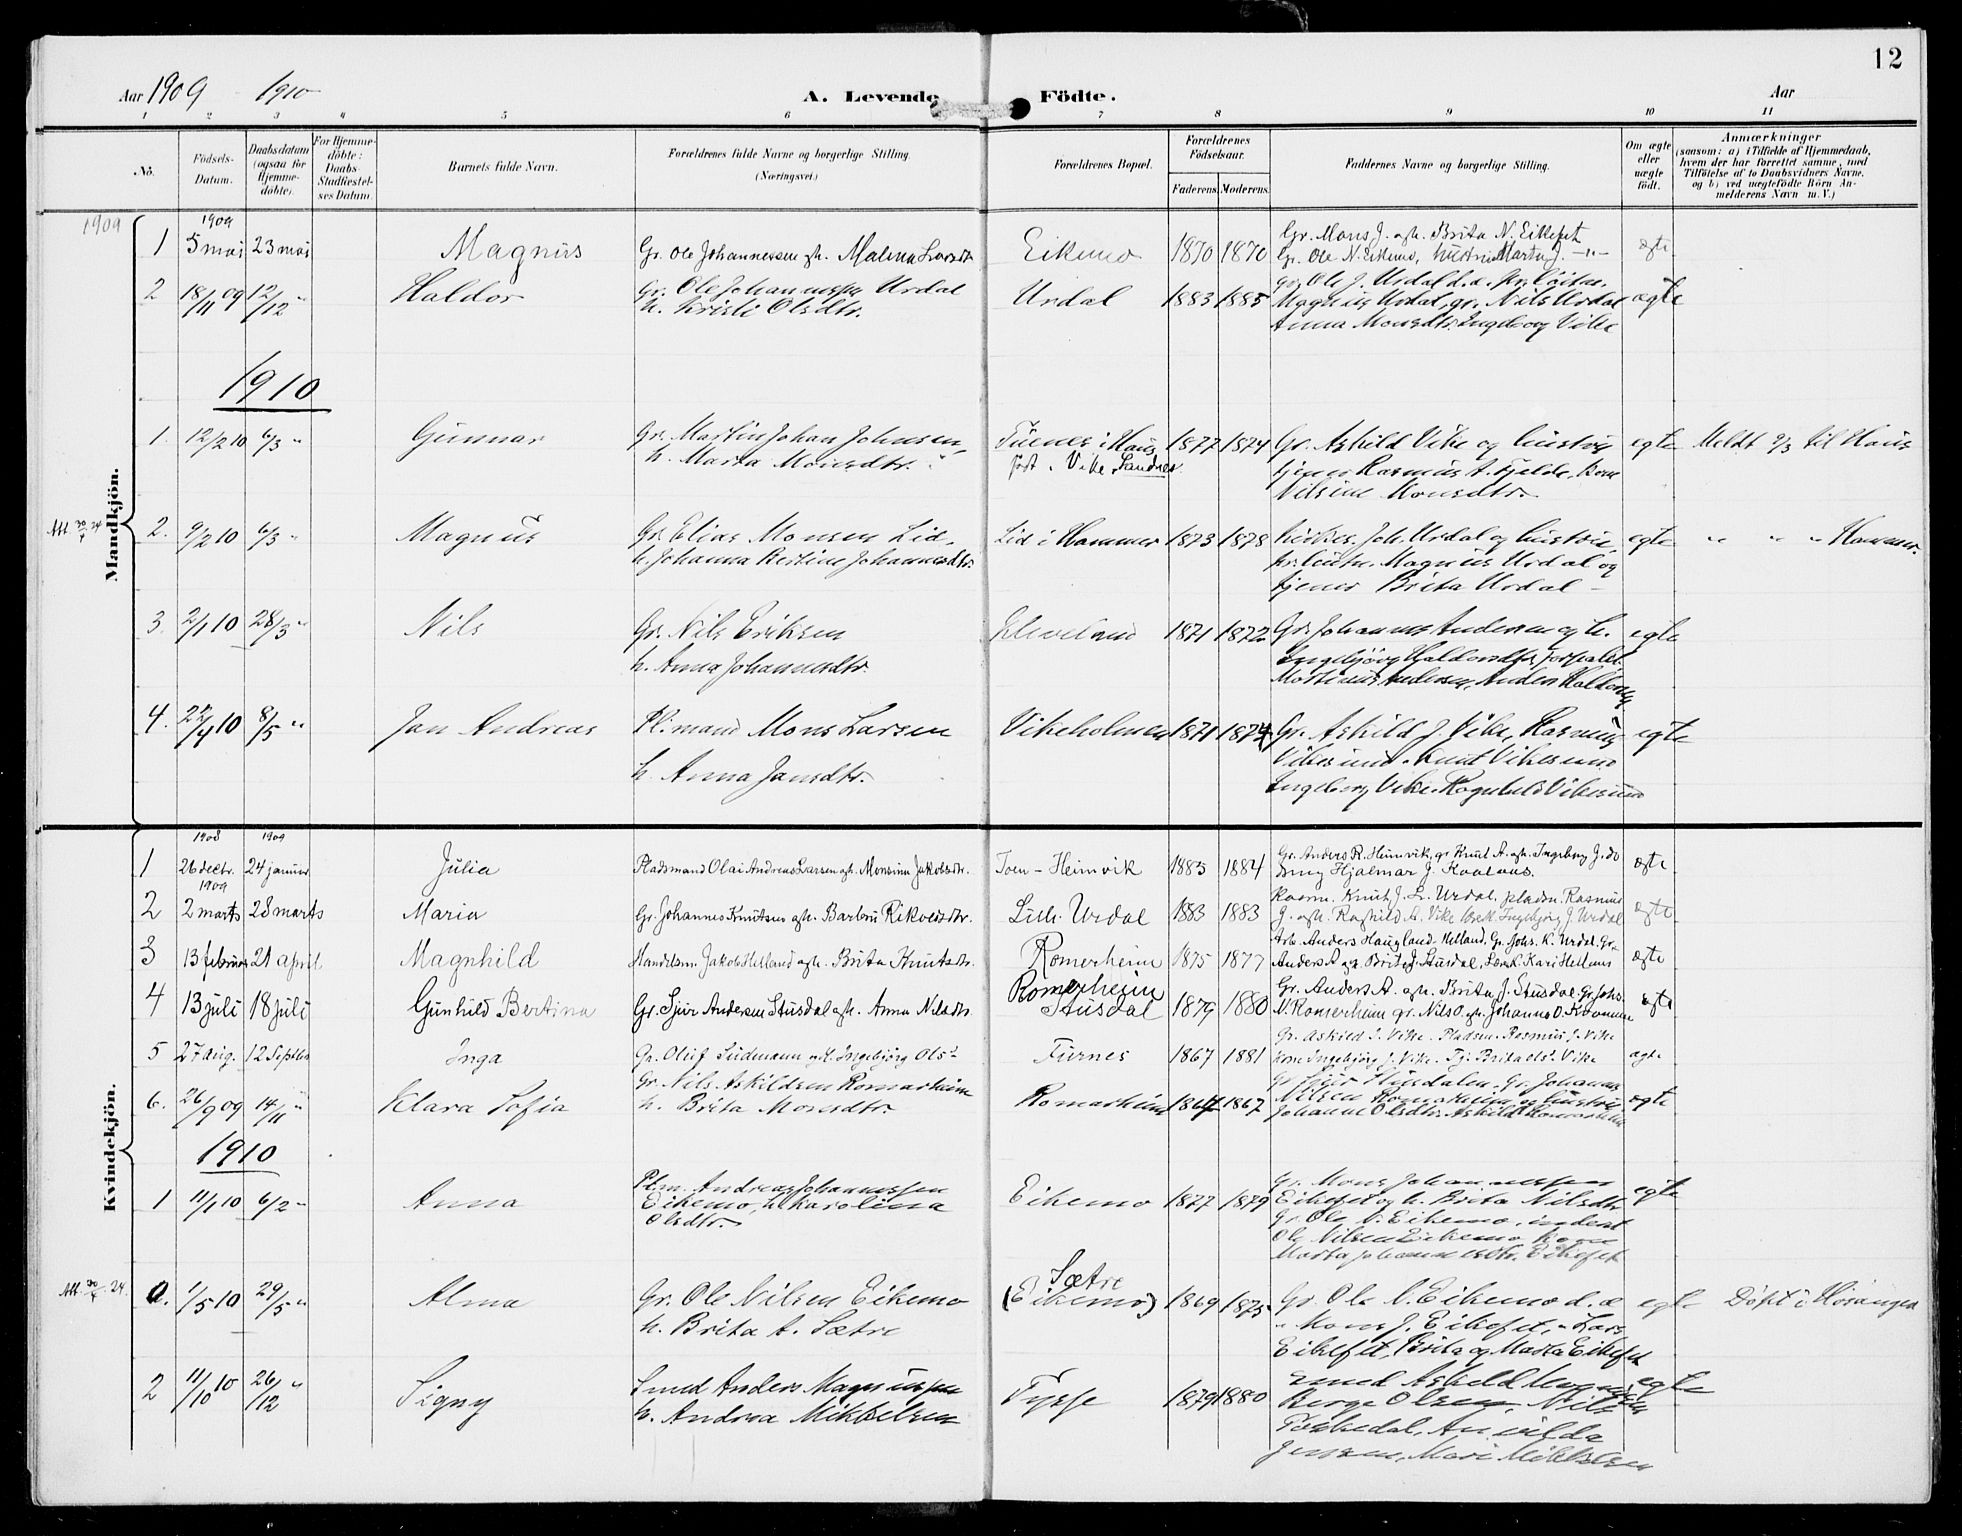 12
Aar 1909 1910 A. Levende Födte. Aar
1 2 3 4 5 6 7 8 9 10 11
No. Födsels-Datum. Daabsdatum (ogsaa for Hjemme-döbte). For Hjemme-döbte: Daabs-Stadfæstel-ses Datum. Barnets fulde Navn. Forældrenes fulde Navne og borgerlige Stilling. (Næringsvei.) Forældrenes Bopæl. Forældrenes Födselsaar. Faderens. Moderens. Faddernes Navne og borgerlige Stilling. Om ægte eller uægte födt. Anmærkninger
(saasom: a) i Tilfælde af Hjemmedaab,
hvem der har forrettet samme, med
Tilföielse af to Daabsvidners Navne,
og b) ved uægtefödte Börn An-
melderens Navn m. V.)
Mandkjön.
1909
1909
1 5 mai 23 mai Magnus Gr. Ole Johannessen og h. Malena Larsdtr Eikemo 1870 1870 Gr. Mons J. og h. Brita N. Eikefet
Gr. Ole N. Eikemo, Marta J. -"- ægte
2 18/11 09 12/12 " Haldor Gr. Ole Johannessen Urdal
h. Kristi Olsdtr. Urdal 1883 1885 gr. Ole J. Urdal d.æ.
Magnus Urdal, gr. Nils Urdal
Anna Monsdtr, Ingeborg Vike ægte
1910
1. 12/2 10 6/3 " Gunnar Gr. Martin Johan Johnsen
h. Marta Monsdtr. i Haus
født i Vike Sandnes. 1877 1874 Gr. Askild Vike og hustru
tjener Rasmus A. Fjelde, Kone
Nilsine Monsdtr. egte Meldt 9/3 til Haus
Att. 30/4 24
2. 9/2 10 6/3 " Magnus Gr. Elias Monsen Lid
h. Johanna Kristine Johannesdtr. Lid i Hammer 1873 1878 Joh. Urdal og hustru,
Magnus Urdal og
tjener Brita Urdal egte " " " Hammer.
3. 2/1 10 28/3 " Nils Gr. Nils Eriksen
h. Anna Johannesdtr. Kleveland 1871 1872 Gr. Johannes Andersen og h.
Ingebjørg Haldorsdtr,
Andersen, Anders egte
4. 22/4 10 8/5 " Jan Andreas Pl.mand Mons Larsen
h. Anna Jansdtr. Vikeholmen 1871 1874 Gr. Askild J. Vike, Rasmus
Vikesund, Knut Vikesund
Ingeborg Vike, Ragnhild Vikesund egte
Kvindekjön.
1908 1909
1 26 decbr. 24 januar Julia Pladsmand Olai Andreas Larsen og h. Monsina Jakobsdtr. Toen - Heimvik 1885 1884 Gr. Anders R. Heimvik, gr. Knut A. og h. Ingeborg J. do
Hjalmar J. ægte
1909
2 2 marts 28 marts Maria Gr. Johannes Knutsen og h. Barbru Rikoldsdtr. Urdal 1883 1883 Knut J. L. Urdal, pladsm. Rasmus
J. og h. Ragnhild A. Vike Ingebjørg J. Urdal ægte
3 13 februar 21 april Magnhild Handelsm. Jakob Helland og h. Brita Knutsdtr. Romerheim 1875 1877 Arb. Anders Haugland-Helland, Gr. Johs. K. Urdal, Gr.
Anders A og h. Brita J. Stusdal, Kari Helland ægte
4 13 juli 18 juli Gunhild Bertina Gr. Sjur Andersen Stusdal og h. Anna Nilsdtr. Romerheim
Stusdal 1879 1880 Gr. Anders A. og h. Brita J. Stusdal, Gr. Johs.
N. Romerheim gr. Nils O. og h. Johanna O. ægte
5 27 aug. 12 Septbr Inga Gr. Oluf Sudmann og h. Ingebjørg Olsdr Furnes 1867 1881 Gr. Askild J. Vike - Pladsm. Rasmus J. Vike
kone Ingebjørg J. Vike - Tj. Brita Olsdr Vike ægte
6. 26/9 09 14/11 " Klara Sofia Gr. Nils Askildsen Romarheim
h. Brita Monsdtr. Romarheim 1864 1867 Gr. Sjur Stusdalen, Gr. Johannes
Nilsen Romarheim og hustru
Johanna Olsdtr. Askild Romarheim ægte
1910
1 11/1 10 6/2 " Anna Plm. Andreas Johannessen
Eikemo, h. Karolina
Olsdtr. Eikemo 1877 1879 Gr. Mons Johannessen
Eikefet og h. Brita Nilsdtr
Gr. Ole N. Eikemo,
Ole Nilsen Eikemo
Marta Johannesdtr. Eikefet egte
Att. 30/4 24.
0. 1/5 10 29/5 " Alma Gr. Ole Nilsen Eikemo
h. Brita A. Sætre Sætre
(Eikemo) 1869 1875 Gr. Ole N. Eikemo d.æ
" Mons J. Eikefet, " Lars
Eikefet, Brita og Marta Eikefet egte Døpt i Hosanger
2 11/10 10 26/12 " Signy Smed Anders Magnussen
h. Andrea Mikkelsen Tysse 1879 1880 Smed Askild
Berge Olsen, Nils
Toskedal,
Jensen, Mari Mikkelsen egte